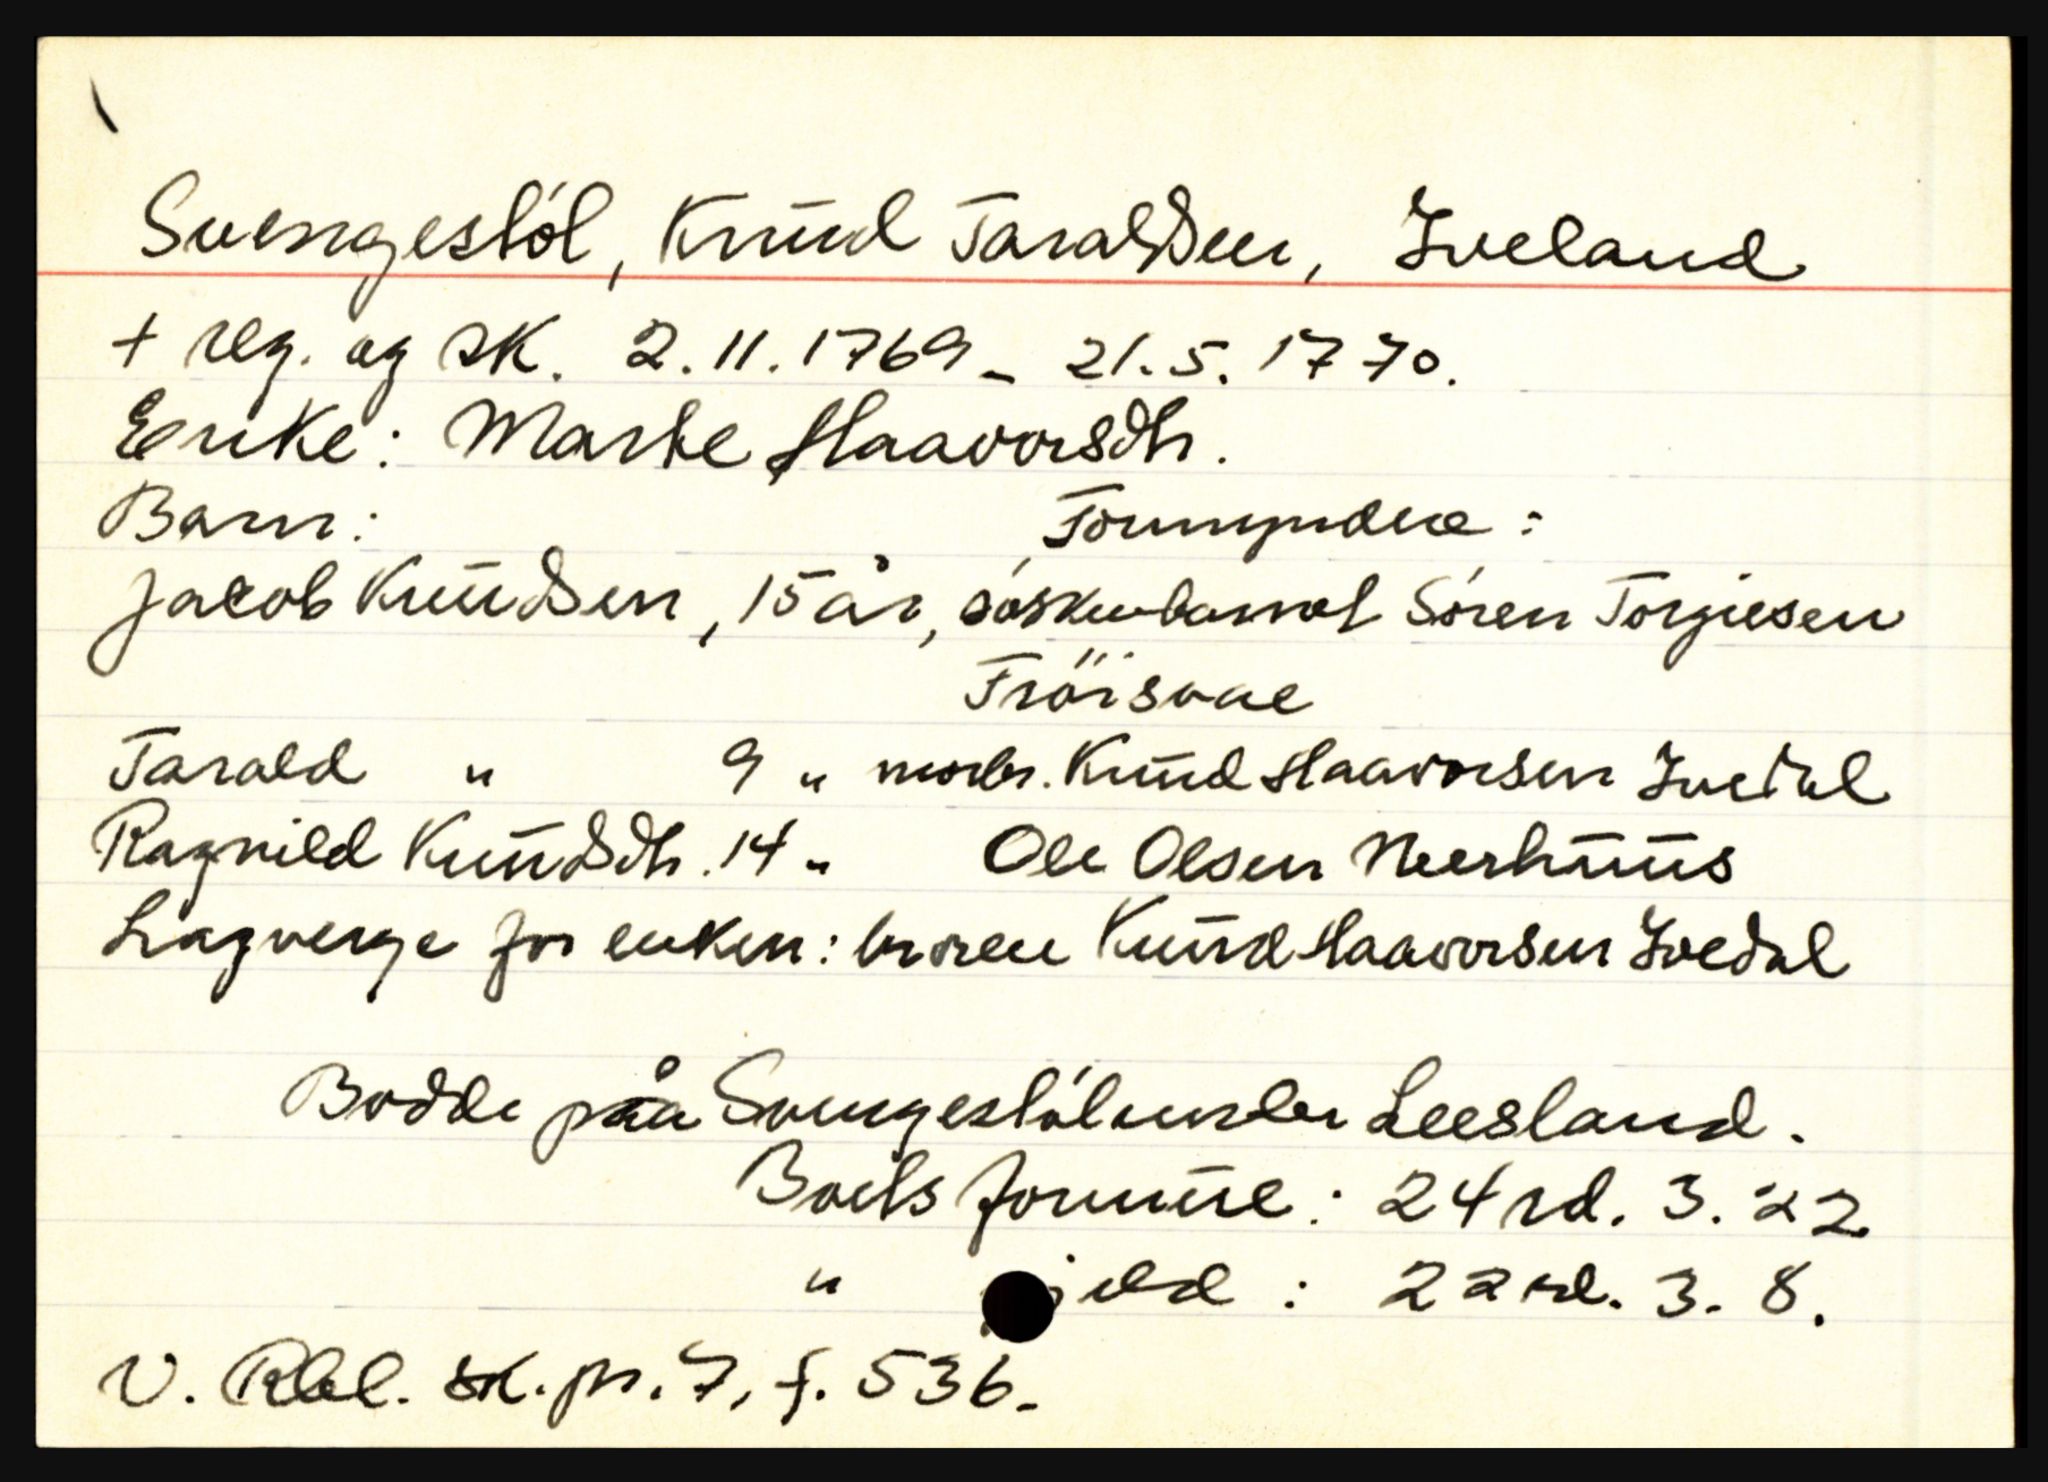 Svengestöl, Knud Taraldsen, Iveland
+ reg. og sk. 2.11.1769 - 21.5.1770.
Enke: Marte Haavorsdtr.
Barn: Formyndere:
Jacob Knudsen, 15 år, söskenbarnet Sören Torgiesen
Fröisaae
Tarald " 9 " morbr. Knud Haavorsen Ivedal
Ragnild Knudsdtr. 14 " Ole Olsen Neerhuus
Lagverge for enken: broren Knud Haavorsen Ivedal
Bodde på Svengestöl under Leesland.
Boets formue: 24 rd. 3. 22
" gjeld: 22 rd. 3. 8.
V. Rbl. sk.pr. 7, f. 536.-